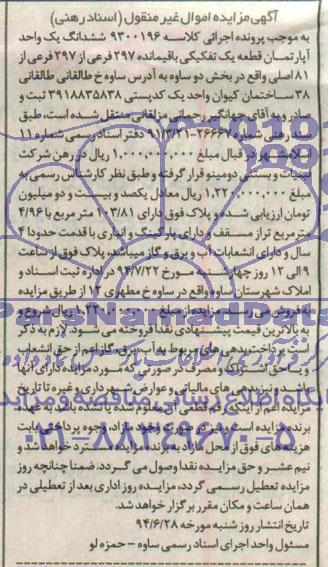 آگهی مزایده اموال غیر منقول (اسناد رهنی)
به موجب پرونده اجرائی کلاسه ۹۳۰۰۱۹۶ ششدانگ یک واحد
آپارتمان قطعه یک تفکیکی باقیمانده ۲۹۷ فرعی از ۲۹۷ فرعی از
۸۱ اصلی واقع در بخش دو ساوه به آدرس ساوه خ طالقانی طالقانی
۳۸ ساختمان کیوان واحد یک کدپستی ۳۹۱۸۸۳۵۸۳۸ ثبت و
صادر و به آقای جهانگیر رحمانی مزلقانی منتقل شده است، طبق
سند رهنی شماره ۲۶۶۶۷-۹۱/۳/۲۱ دفتر اسناد رسمی شماره ۱۱
اسلامشهر در قبال مبلغ ۱,۰۰۰,۰۰۰,۰۰۰ ریال در رهن شرکت
لبنیات و بستنی دومینو قرار گرفته و طبق نظر کارشناس رسمی به
مبلغ ۱,۲۲۰,۰۰۰,۰۰۰ ریال معادل یکصد و بیست و دو میلیون
تومان ارزیابی شده و پلاک فوق دارای ۱۰۳/۸۱ متر مربع با ۴/۹۶
متر مربع تراز مسقف و دارای پارکینگ و انباری با قدمت حدودا ۴
سال و دارای انشعابات آب و برق و گاز میباشد، پلاک فوق از ساعت
۹ الی ۱۲ روز چهارشنبه مورخ ۹۴/۷/۲۲ در اداره ثبت اسناد و
املاک شهرستان ساوه واقع در ساوه خ مطهری ۱۲ از طریق مزایده
به فروش می رسد. مزایده از مبلغ ۱,۲۲۰,۰۰۰,۰۰۰ ریال شروع و
به بالاترین قیمت پیشنهادی نقدا فروخته می شود. لازم به ذکر
است پرداخت بدهی های مربوط به آب، برق، گاز اعم از حق انشعاب
و یا حق اشتراک و مصرف در صورتی که مورد مزایده دارای آنها
باشد و نیز بدهی های مالیاتی و عوارض شهرداری و غیره تا تاریخ
مزایده اعم از اینکه رقم قطعی آن معلوم شده یا نشده باشد به عهده
برنده مزایده است و نیز در صورت وجود مازاد، وجوه پرداختی بابت
هزینه های فوق از محل مازاد به برنده مزایده مسترد خواهد شد و
نیم عشر و حق مزایده نقدا وصول می گردد. ضمنا چنانچه روز
مزایده تعطیل رسمی گردد، مزایده روز اداری بعد از تعطیلی در
همان ساعت و مکان مقرر برگزار خواهد شد.
تاریخ انتشار روز شنبه مورخه ۹۴/۶/۲۸
مسئول واحد اجرای اسناد رسمی ساوه - حمزه لو
پایگاه اطلاع رسانی مناقصه و مزایده
۰۲۱-۸۸۳۴۹۶۷۰-۵